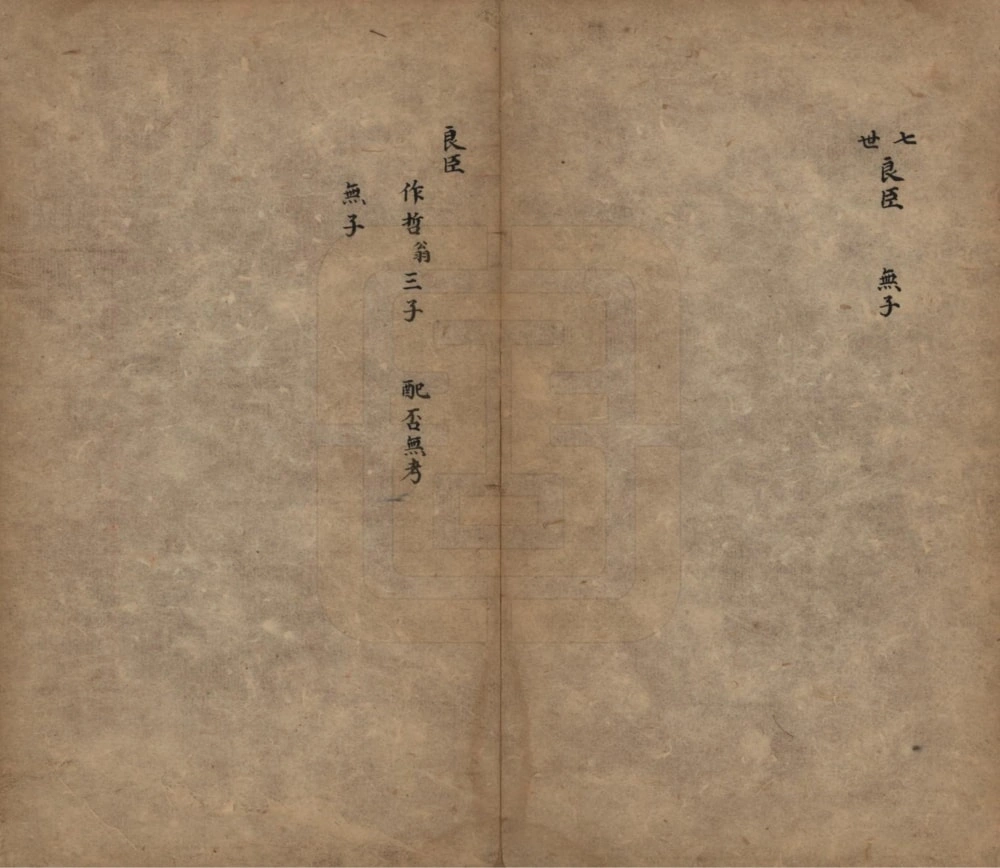 七世
良臣　無子
良臣
作哲翁三子　配否無考
無子